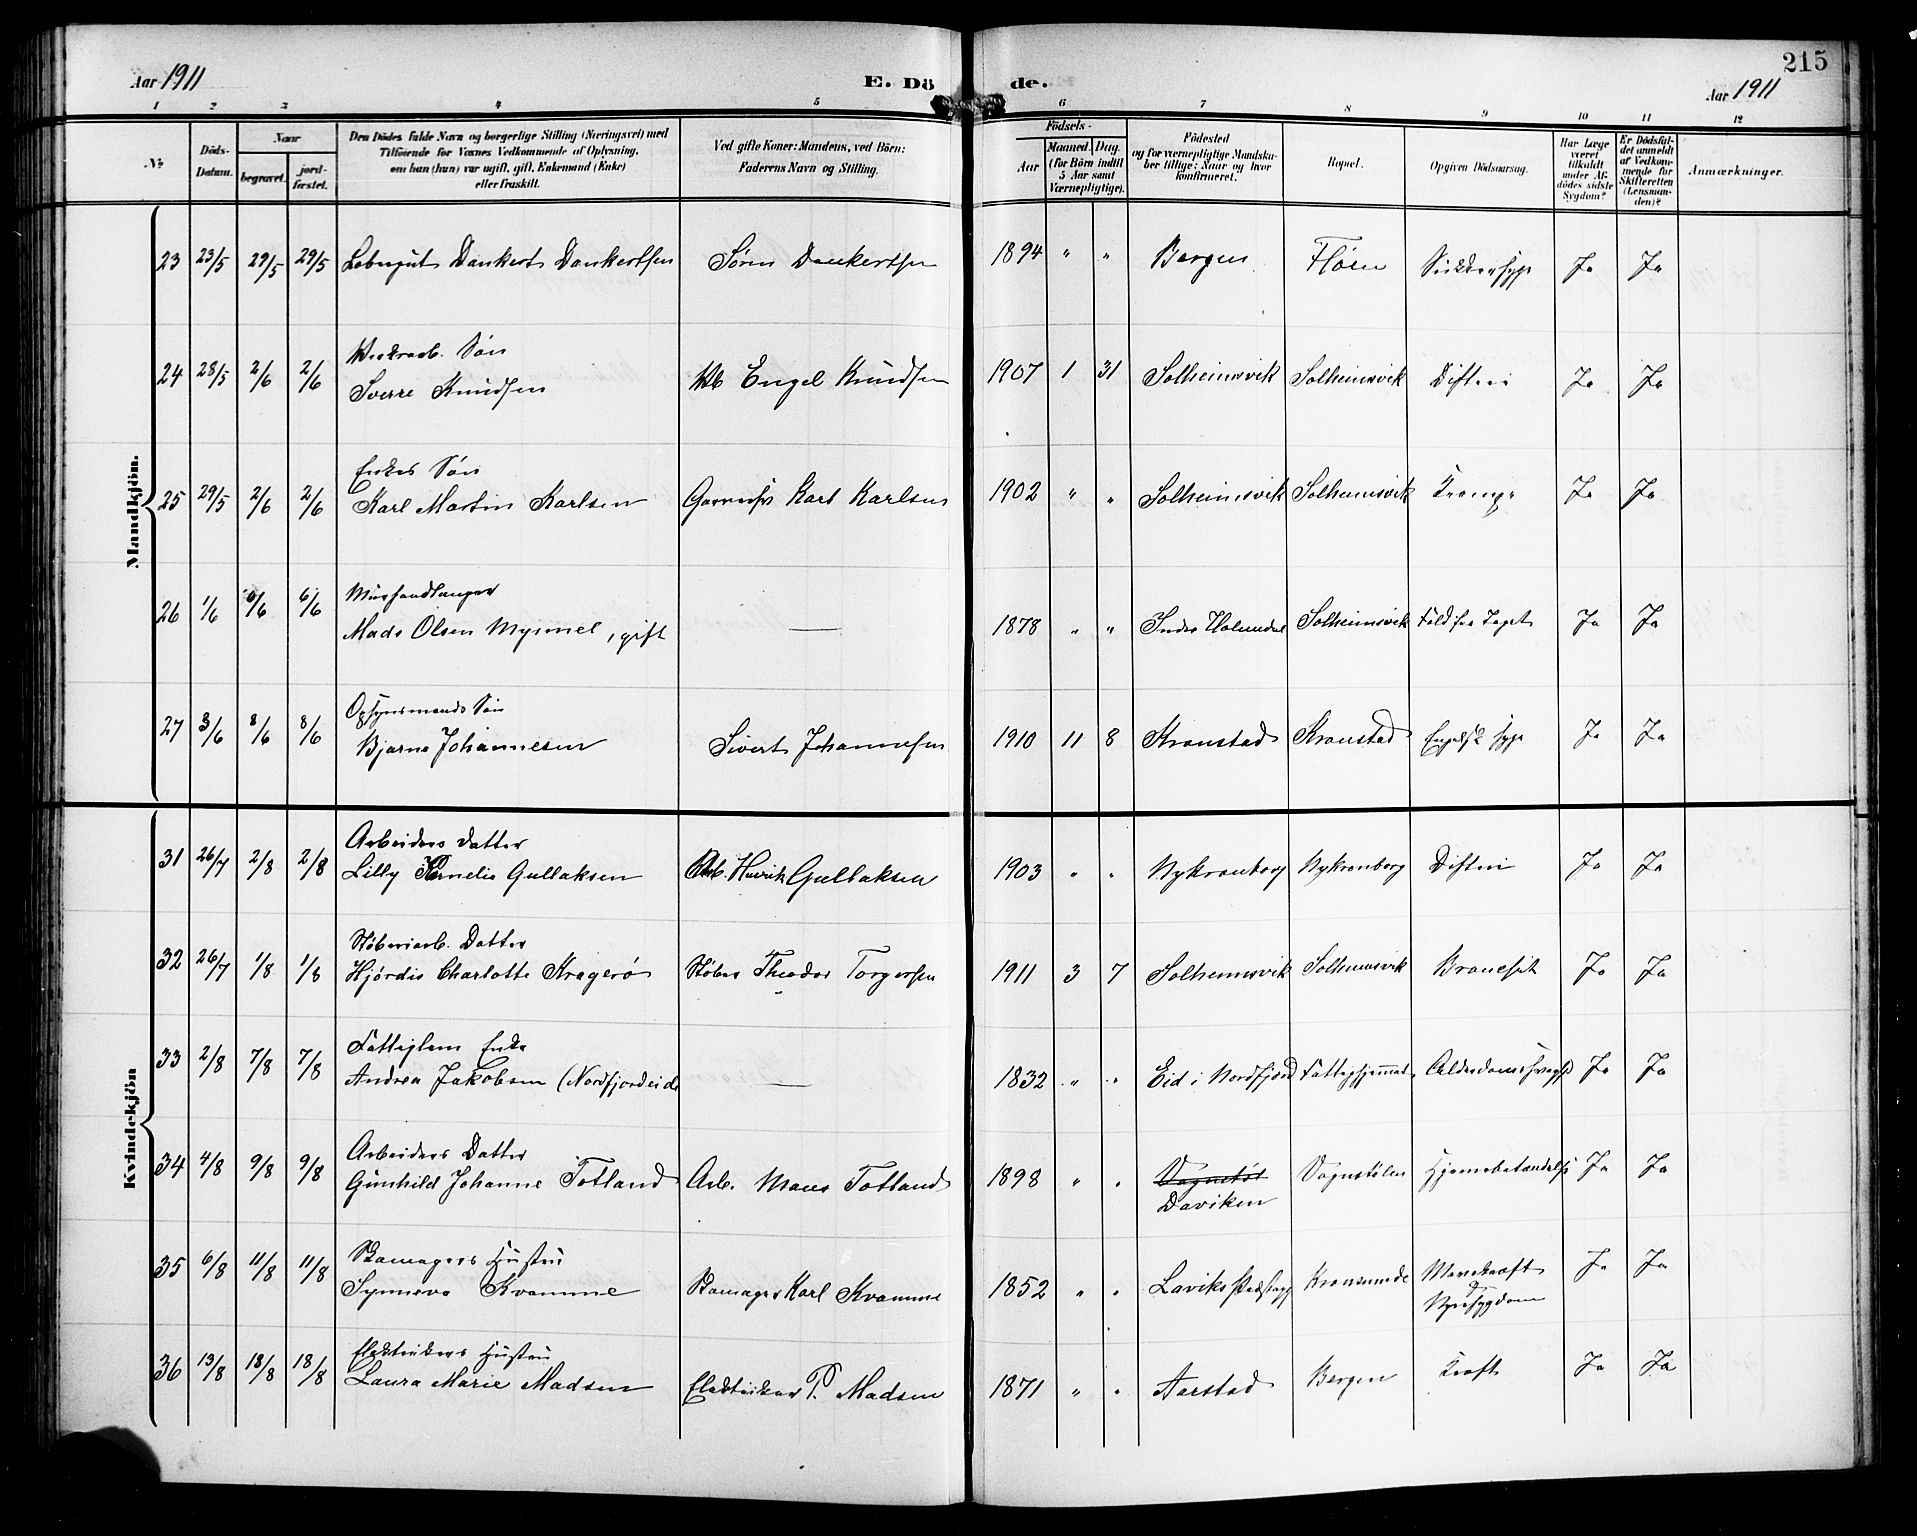 215
Aar 1911 E. Dö de. Aar 1911
1 2 3 4 5 6 7 8 9 10 11 12
No Döds-Datum. Naar begravet. jordfæstet. Den Dödes fulde Navn og borgerlige Stilling (Næringsvei) med Tilföiende for Voxnes Vedkommende af Oplysning, om han (hun) var ugift, gift, Enkemand (Enke) eller fraskilt. Ved gifte Koner: Mandens, ved Börn: Faderens Navn og Stilling. Födsels- Aar Maaned. Dag. (for Börn indtil 5 Aar samt Værnepligtige). Födested og for værnepligtige Mandskaber tillige: Naar og hvor konfirmeret. Bopæl. Opgiven Dödsaarsag. Har Læge været tilkaldt under Afdödes sidste Sygdom? Er Dödsfaldet anmeldt af Vedkommende for Skifteretten (Lensmanden)? Anmærkninger.
Mandkjön.
23 23/5 29/5 29/5 Løbergut Dankert Dankertsen Sören Dankertsen 1894 " " Bergen Florø Sukkersyge Ja Ja
Verkarb. Sön
24 28/5 2/6 2/6 Sverre Knudsen Engel Knudsen 1907 1 31 Solheimsvik Solheimsvik Difteri Ja Ja
Enkes Sön
25 29/5 2/6 2/6 Karl Martin Karlsen Karl Karlsen 1902 " " Solheimsvik Solheimsvik Krampe Ja Ja
Murhandlanger
26 1/6 6/6 6/6 Mads Olsen Myrmel, gift — 1878 " " Indre Holmedal Solheimsvik Fald fra Taget Ja Ja
Opsynsmands Sön
27 3/6 8/6 8/6 Bjarne Johannesen Sivert Johannesen 1910 11 8 Kronstad Kronstad Engelsk Syge Ja Ja
Kvindekjön
Arbeiders Datter
31 26/7 2/8 2/8 Lilly Kornelia Gullaksen Arb. Henrik Gullaksen 1903 " " Nykronborg Nykronborg Difteri Ja Ja
Støberiarb. Datter
32 26/7 1/8 1/8 Hjördis Charlotte Kragerö Støber Theodor Torgersen 1911 3 7 Solheimsvik Solheimsvik Bronchit Ja Ja
Fattiglem Enke
33 2/8 7/8 7/8 Andrea Jakobsen (Nordfjordeide — 1832 " " Eid i Nordfjord Fattighjemmet Alderdomssvagh. Ja Ja
Arbeiders Datter
34 4/8 9/8 9/8 Gunhild Johanne Totland Arb. Mons Totland 1898 " " Vognstöl Daviken Vognstölen Hjernebetændelse Ja Ja
Skomagers Hustru
35 6/8 11/8 11/8 Synneva Kvamme Skomager Karl Kvamme 1852 " " Laviks Præstegj Kronsminde Mavekræft & Nyresygdom Ja Ja
Elektrikers Hustru
36 13/8 18/8 18/8 Laura Marie Madsen Elektriker P. Madsen 1871 " " Aarstad Bergen Kræft Ja Ja